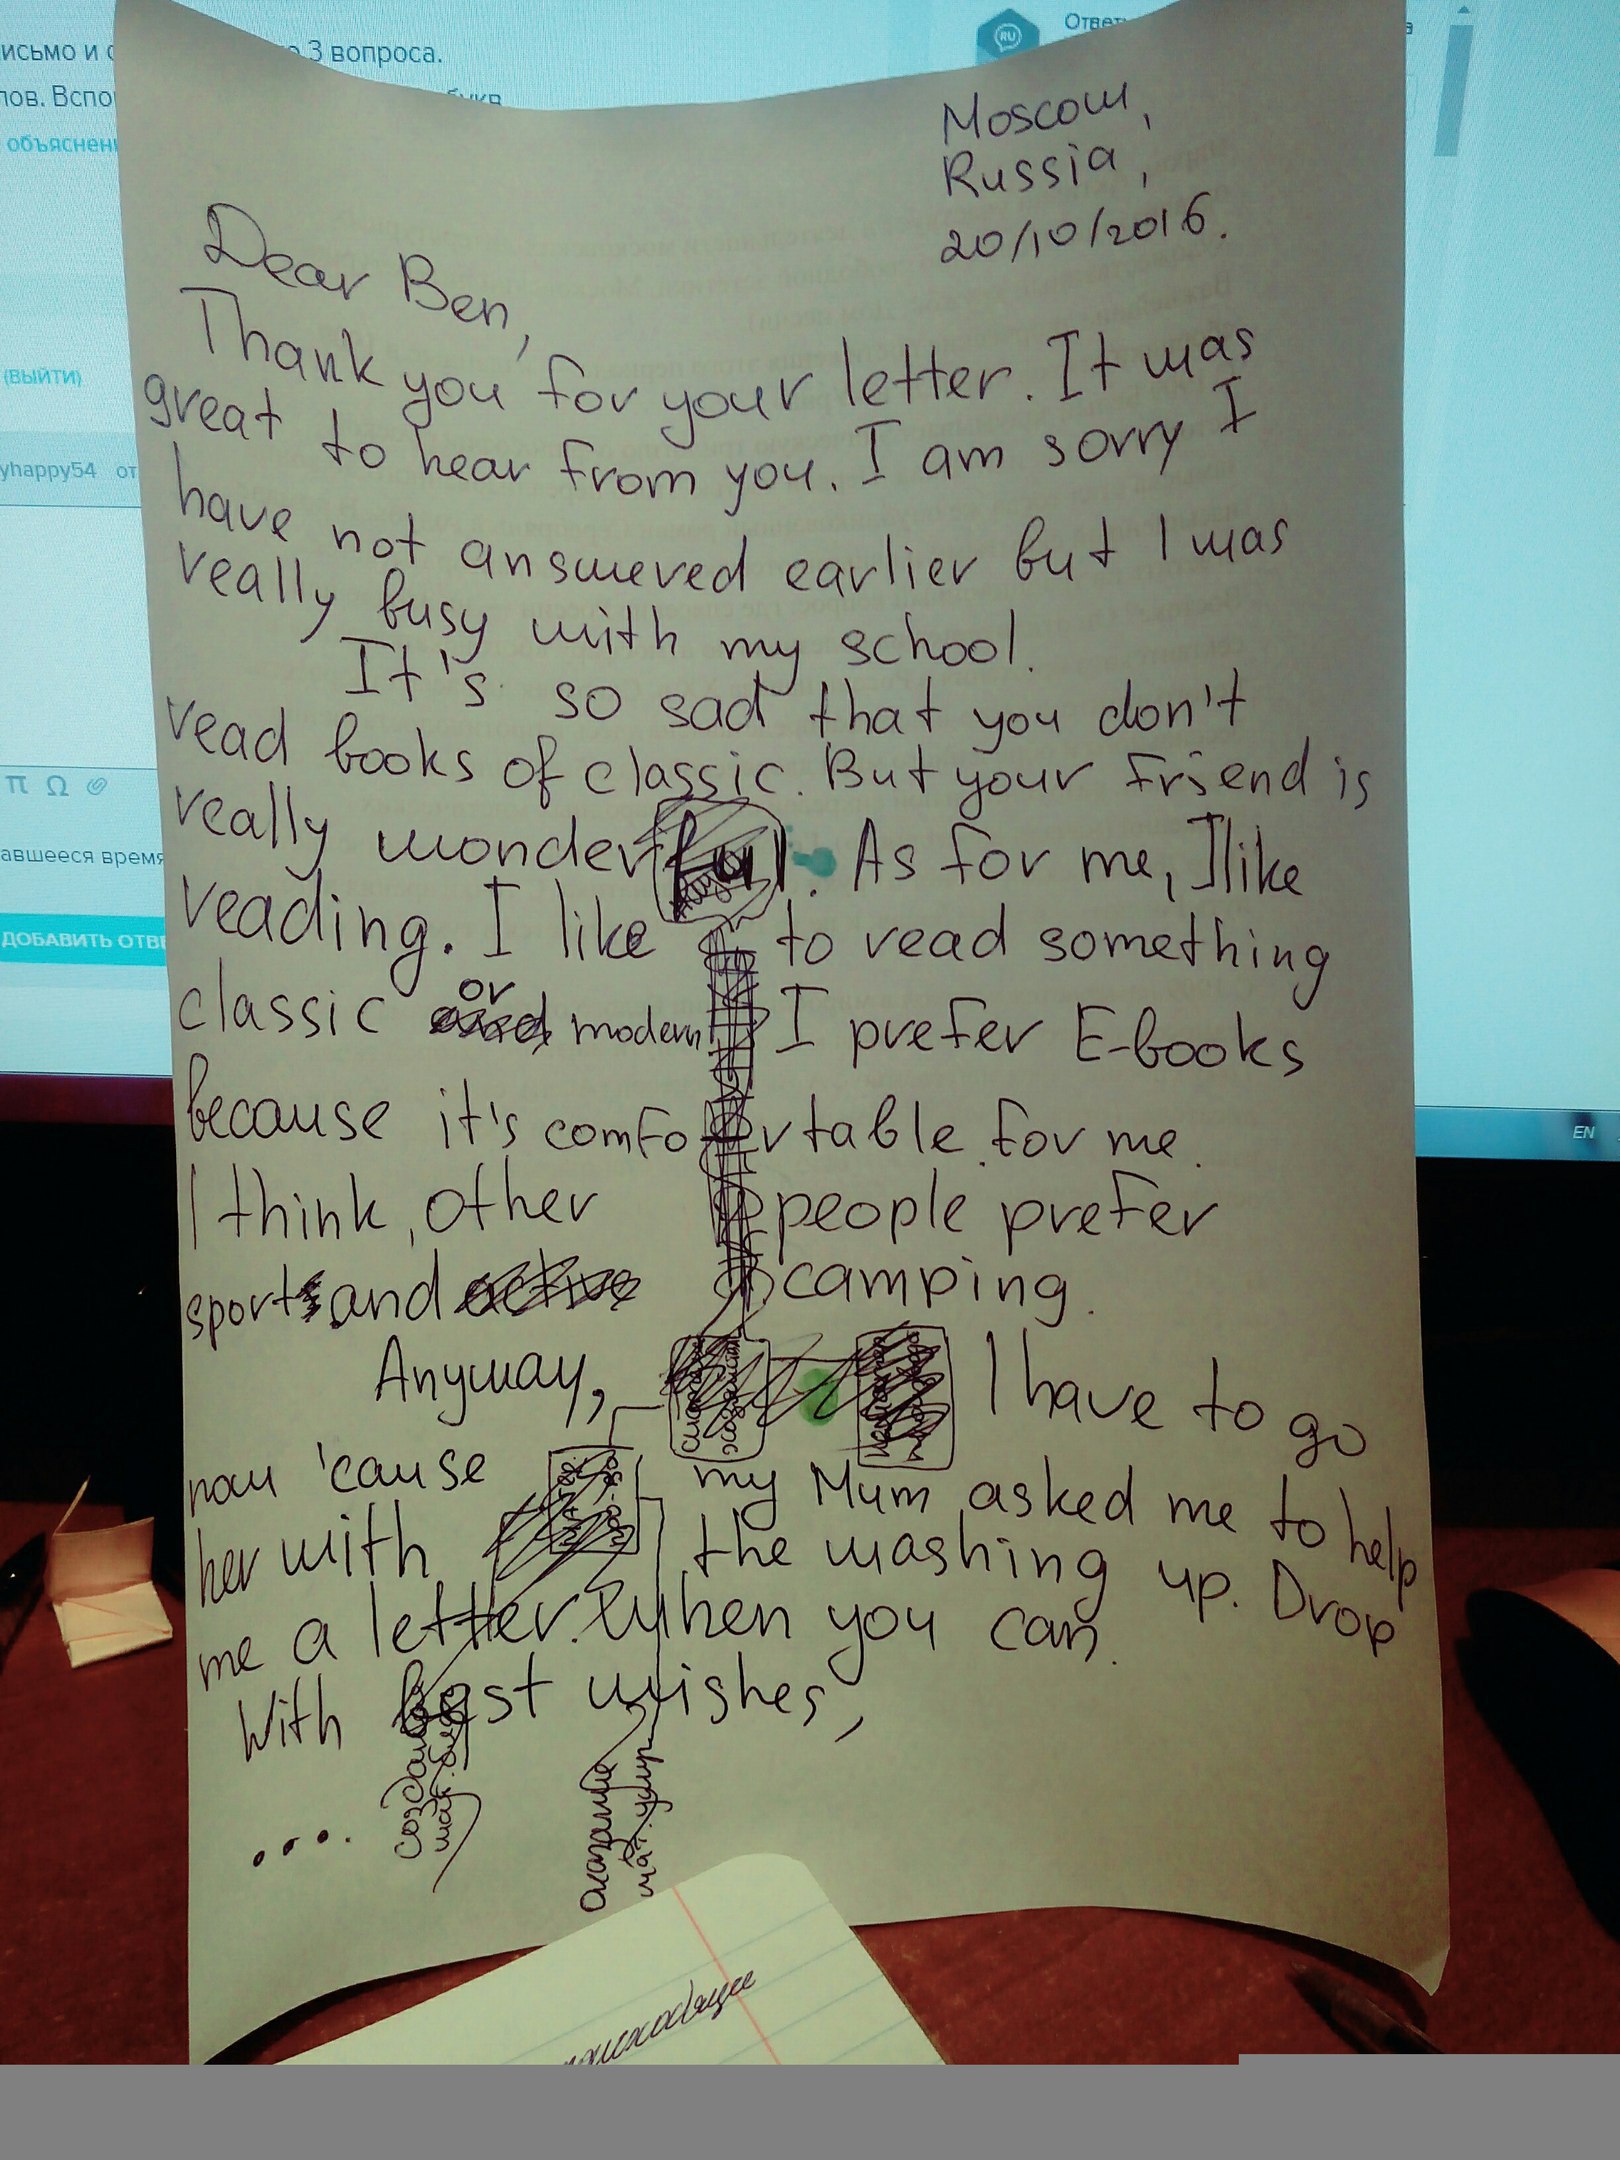 3 вопроса.
объяснен
(ВЫЙТИ)
yhappy54 от
π Ω
авшееся время
ДОБАВИТЬ ОТВ
RU
EN
Moscow,
Russia,
20/10/2016.
Dear Ben,
Thank you for your letter. It was
great to hear from you. I am sorry I
have not answered earlier but I was
really busy with my school.
It's so sad that you don't
read books of classic. But your friend is
really wonderful. As for me, I like
reading. I like to read something
classic or modern I prefer E-books
because it's comfortable for me.
I think, other people prefer
sport and camping.
Anyway, I have to go
now 'cause my Mum asked me to help
her with the washing up. Drop
me a letter when you can.
With best wishes,
....